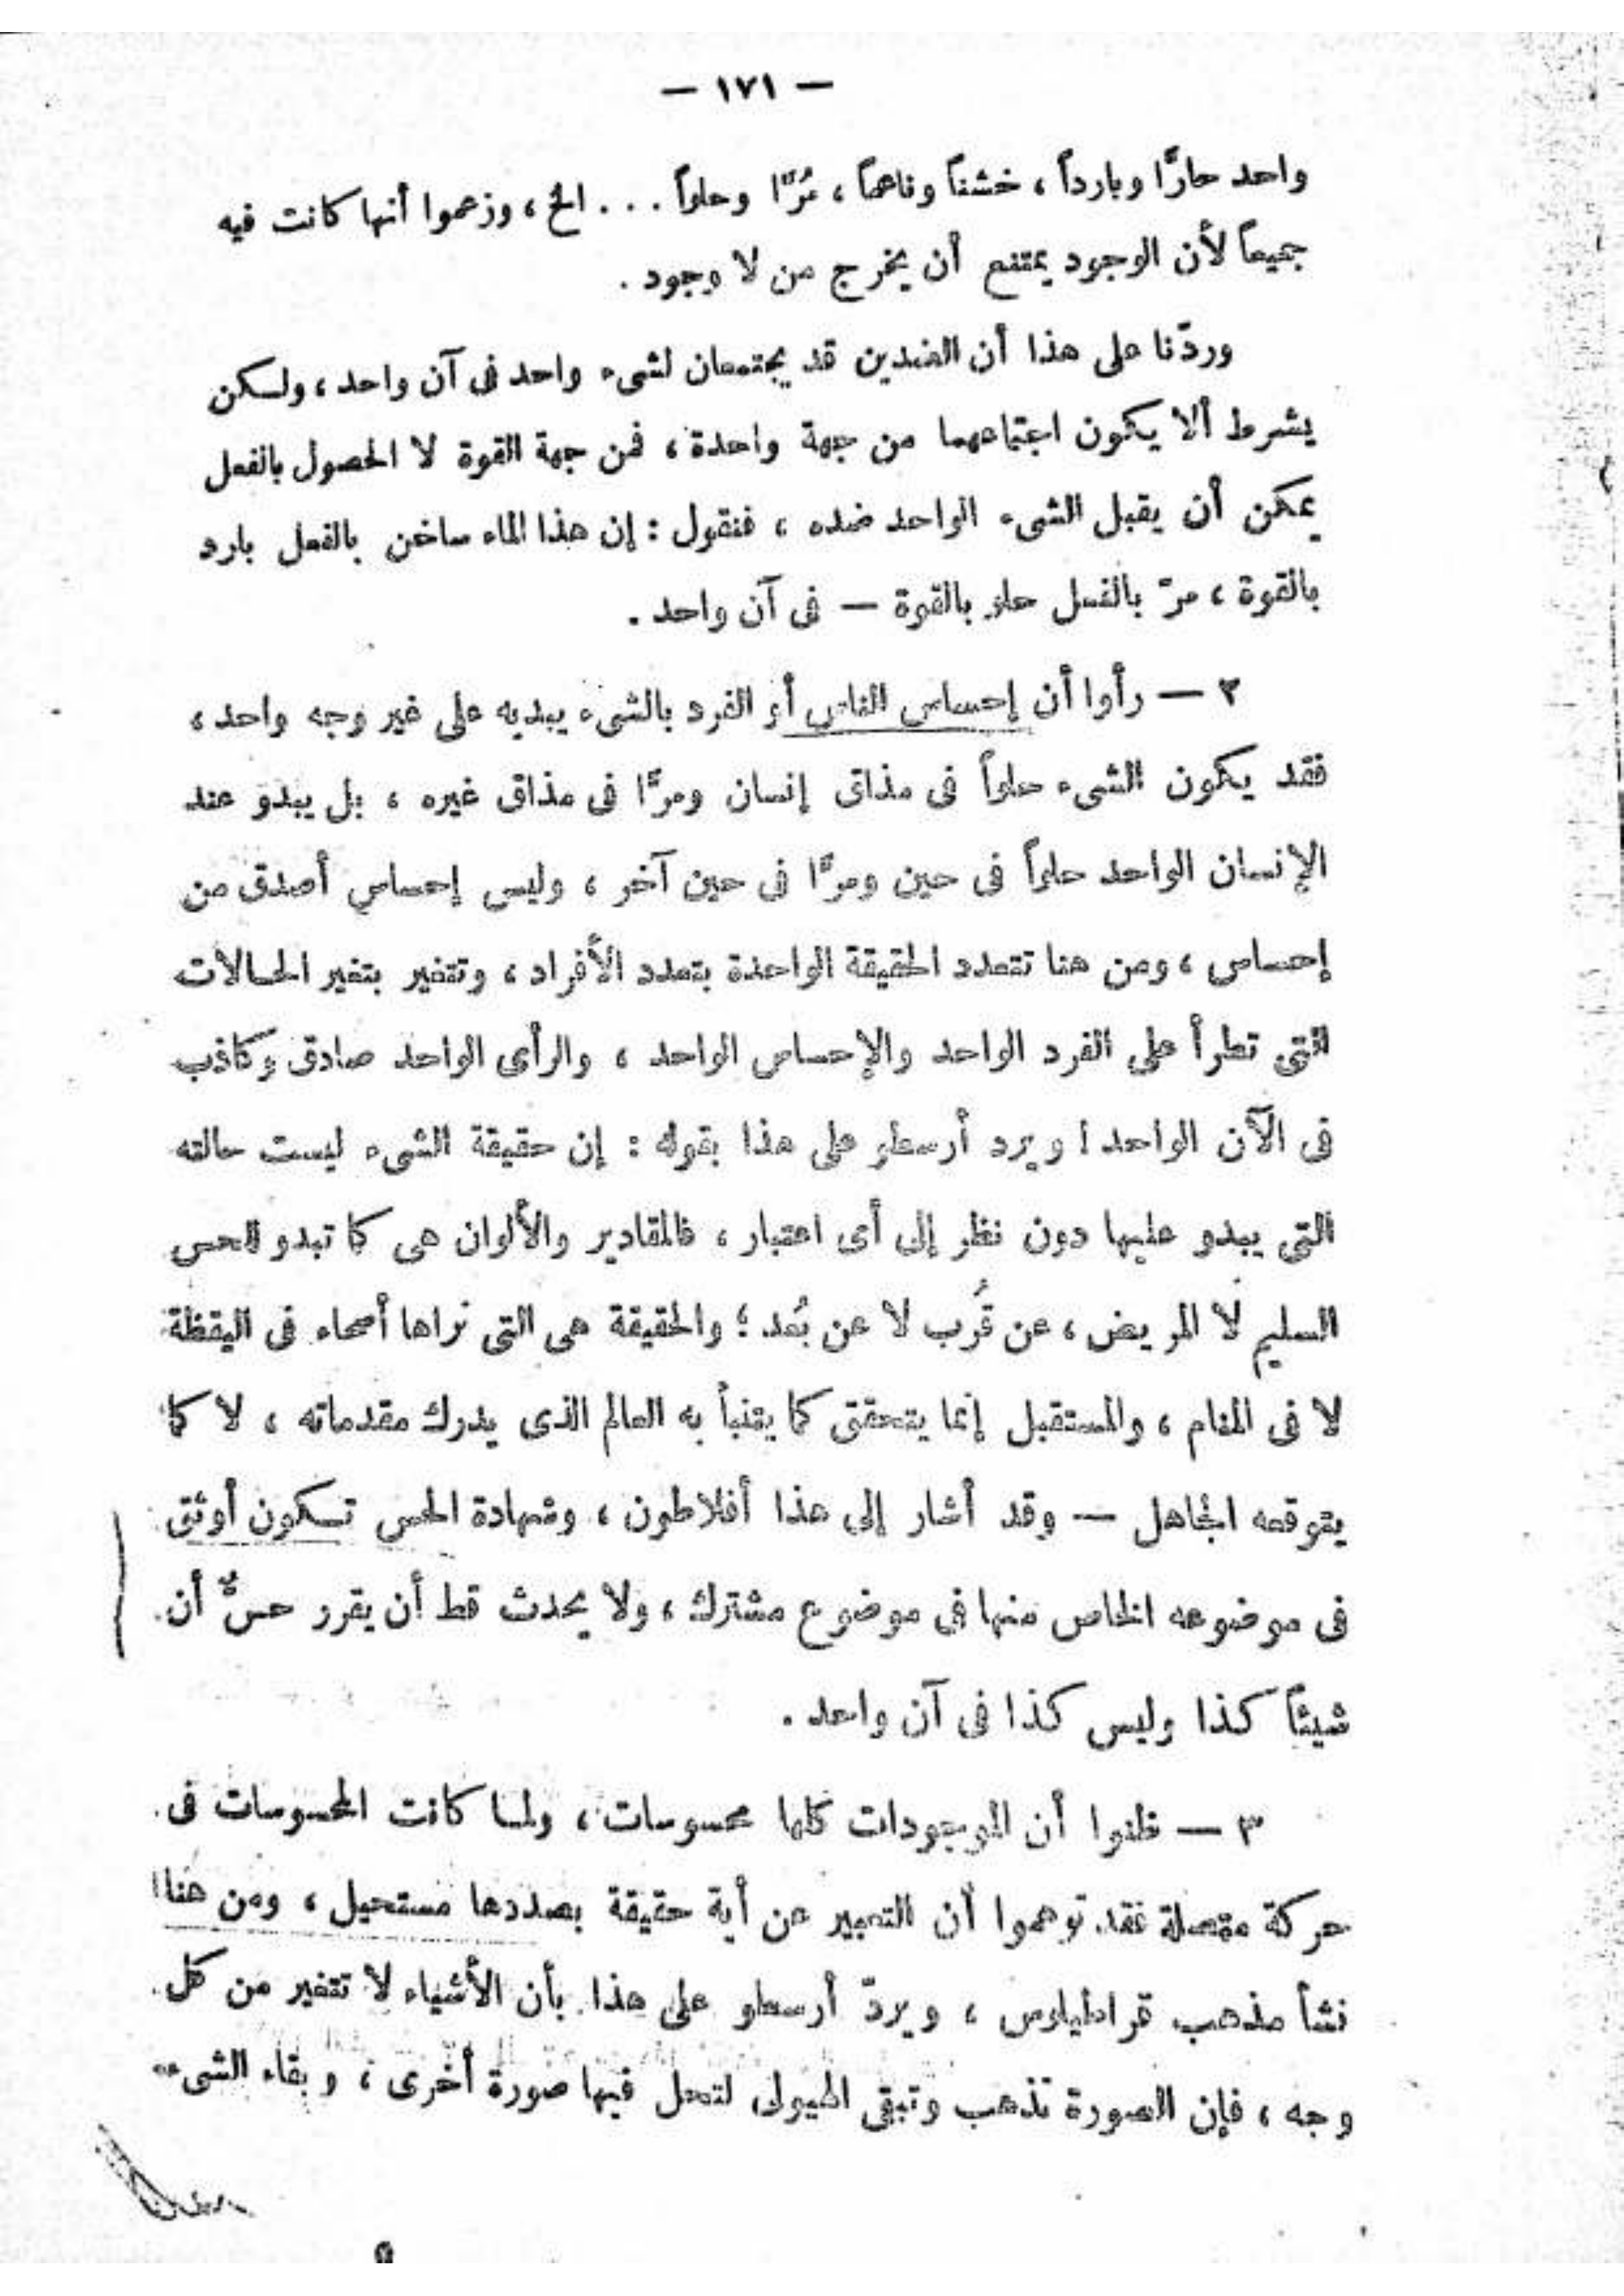 — ١٧١ —
واحد حارًّا وبارداً ، خشناً وناعماً ، مُرًّا وحلواً . . . الخ ، وزعموا أنها كانت فيه
جميعاً لأن الوجود يمتنع أن يخرج من لا وجود .
وردّنا على هذا أن الضدين قد يجتمعان لشىء واحد فى آن واحد ، ولكن
يشرط ألا يكون اجتماعهما من جهة واحدة ، فمن جهة القوة لا الحصول بالفعل
يمكن أن يقبل الشىء الواحد ضده ، فنقول : إن هذا الماء ساخن بالفعل بارد
بالقوة ، مرّ بالفعل حلو بالقوة — فى آن واحد .
٢ — رأوا أن إحساس الناس أو الفرد بالشىء يبديه على غير وجه واحد ،
فقد يكون الشىء حلواً فى مذاق إنسان ومرًّا فى مذاق غيره ، بل يبدو عند
الإنسان الواحد حلواً فى حين ومرًّا فى حين آخر ، وليس إحساس أصدق من
إحساس ، ومن هنا تتعدد الحقيقة الواحدة بتعدد الأفراد ، وتتغير بتغير الحالات
التى تطرأ على الفرد الواحد والإحساس الواحد ، والرأى الواحد صادق وكاذب
فى الآن الواحد ! ويرد أرسطو على هذا بقوله : إن حقيقة الشىء ليست حالته
التى يبدو عليها دون نظر إلى أى اعتبار ، فالمقادير والألوان هى كما تبدو للحس
السليم لا المريض ، عن قُرب لا عن بُعد ؛ والحقيقة هى التى نراها أصحاء فى اليقظة
لا فى المنام ، والمستقبل إنما يتحقق كما يتنبأ به العالم الذى يدرك مقدماته ، لا كما
يتوقعه الجاهل — وقد أشار إلى هذا أفلاطون ، وشهادة الحس تكون أوثق
فى موضوعه الخاص منها فى موضوع مشترك ، ولا يحدث قط أن يقرر حسٌّ أن
شيئاً كذا وليس كذا فى آن واحد .
٣ — ظنوا أن الموجودات كلها محسوسات ، ولما كانت المحسوسات فى
حركة متصلة فقد توهموا أن التعبير عن أية حقيقة بصددها مستحيل ، ومن هنا
نشأ مذهب قراطيلوس ، ويردّ أرسطو على هذا بأن الأشياء لا تتغير من كل
وجه ، فإن الصورة تذهب وتبقى الهيولى لتحل فيها صورة أخرى ، وبقاء الشىء